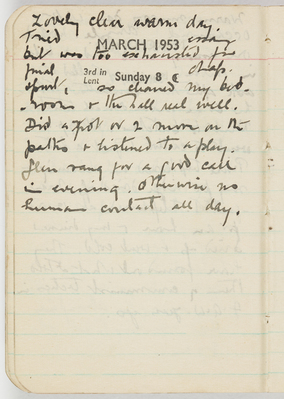 Lovely clear warm day
Tried
MARCH 1953
but was too exhausted for
final chap.
3rd in Lent
Sunday 8
spurt, so cleaned my bed-
room & the hall real well.
Did a spot or 2 more on the
paths & listened to a play.
Glen rang for a good call
in evening. Otherwise no
human contact all day.